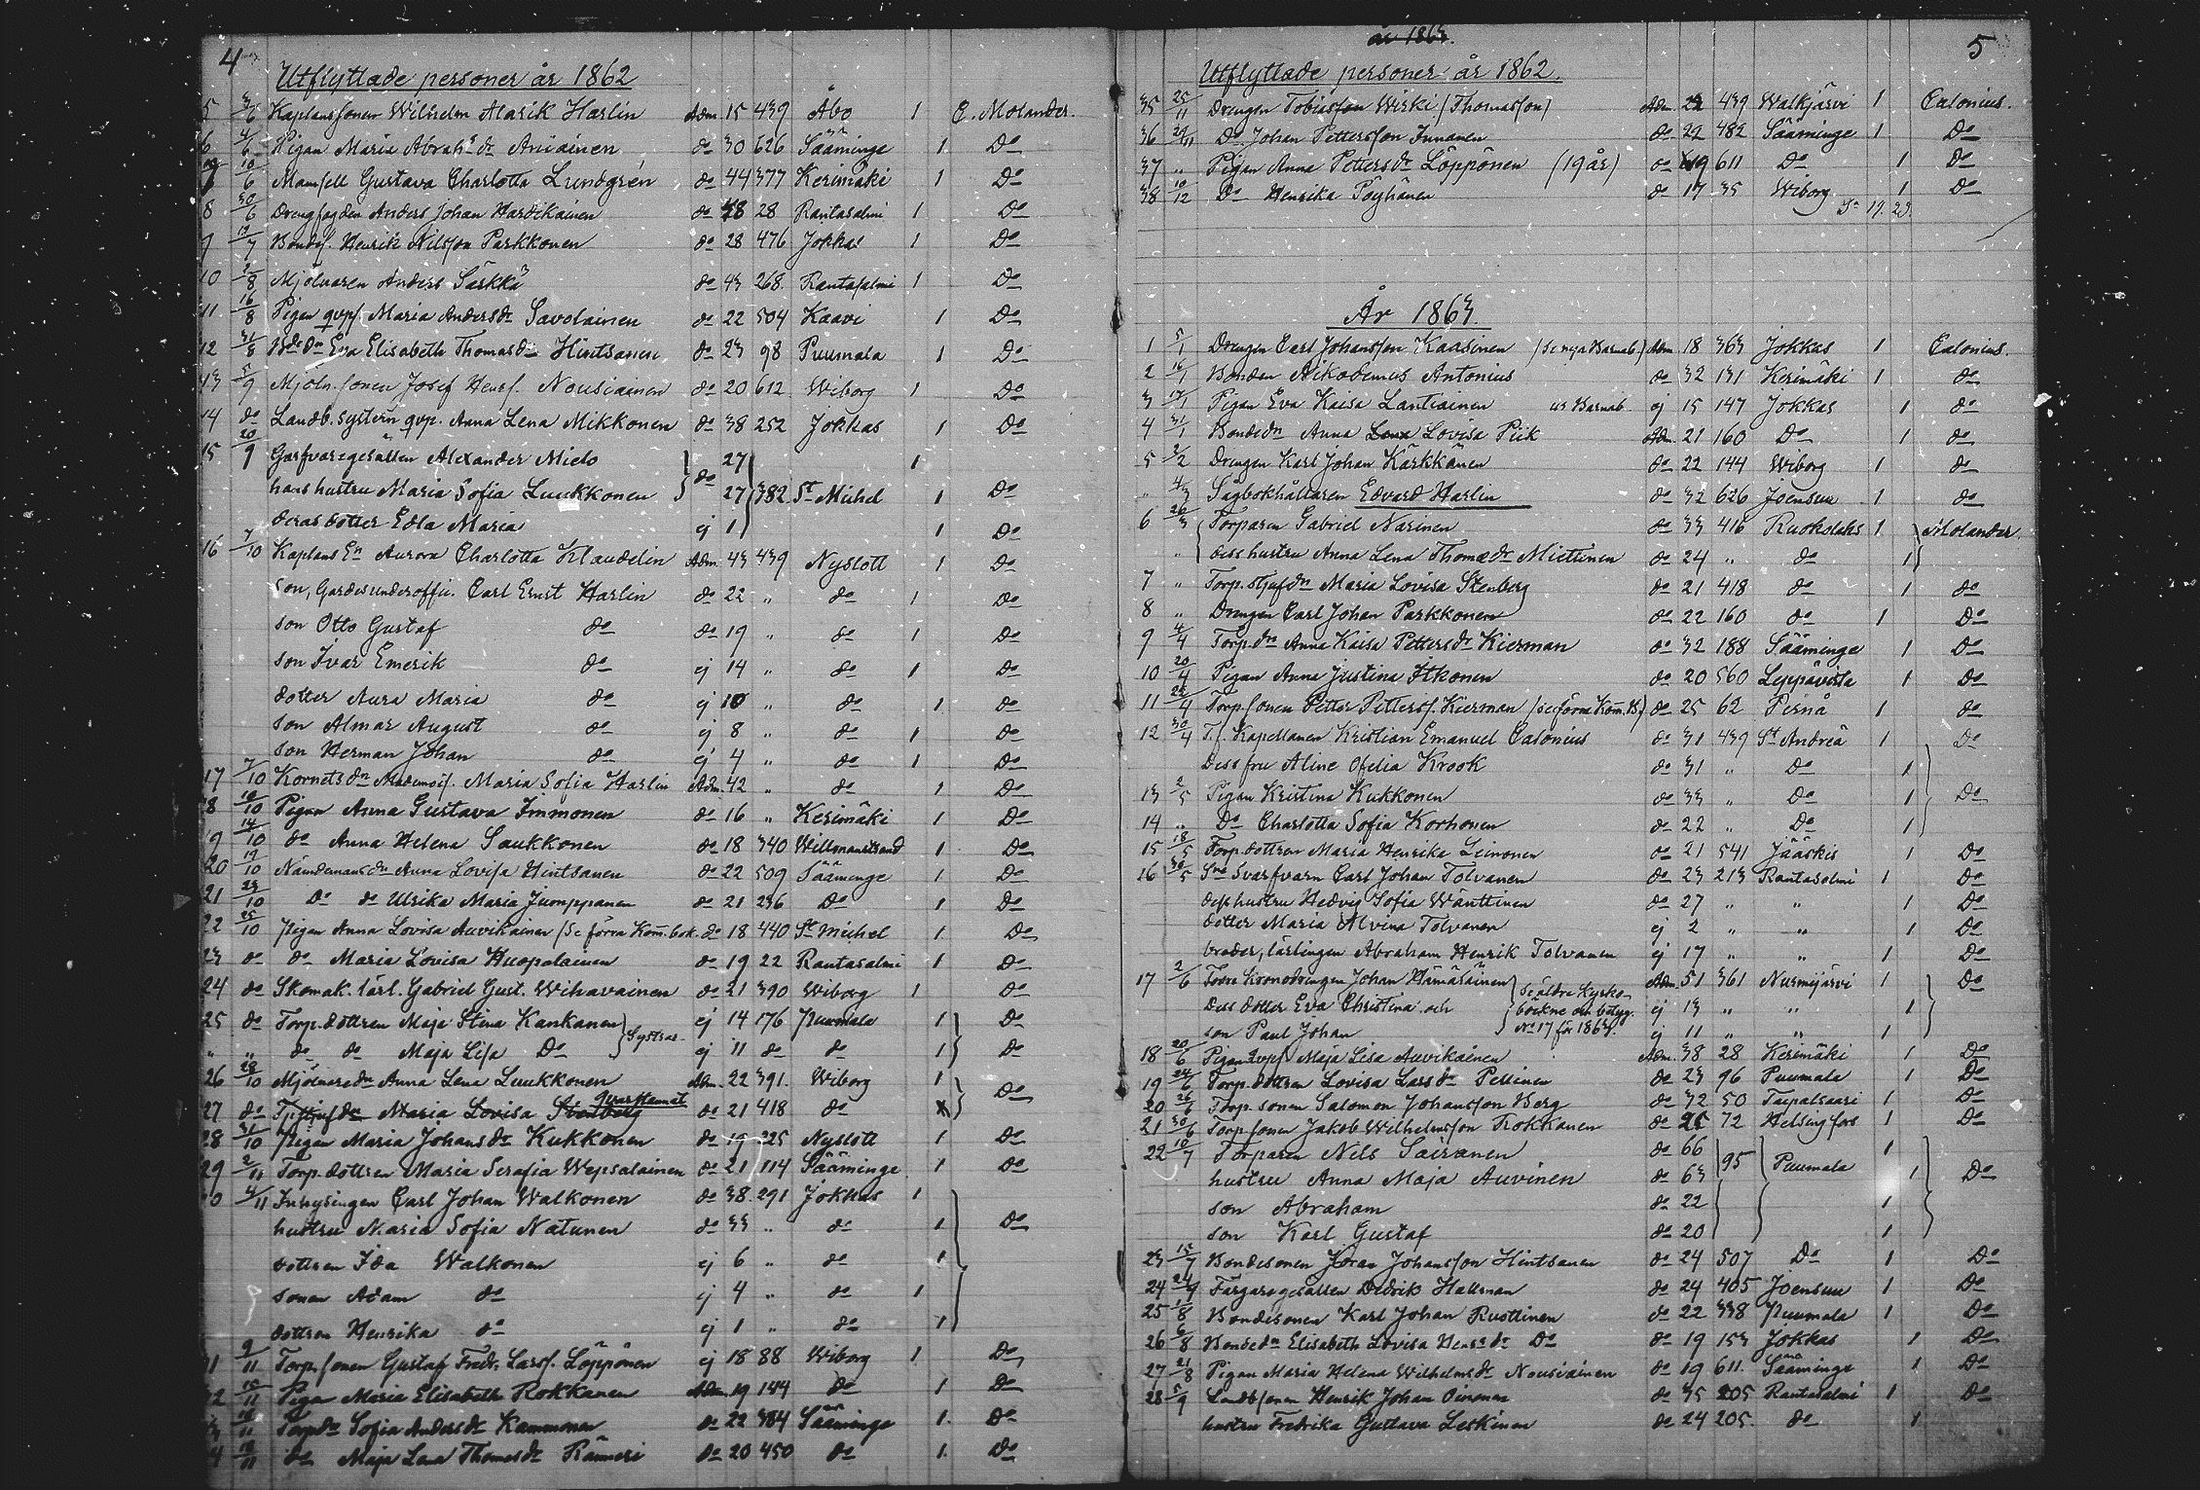 4
Utflyttade personer år 1862
5 3/6 Kaplanssonen Wilhelm Alarik Harlin Adm. 15 439 Åbo 1 E. Molander.
6 4/6 Pigan Maria Abrah:s dr do 30 626 Sääminge 1 Do
10/6 Mamsell Gustava Charlotta Lundgrén do 44 377 Kerimäki 1 Do
8 30/6 Drengfogden Anders Johan Hardikainen do 28 Rantasalmi 1 Do
9 12/7 Bondes. Henrik Nilsson Parkkonen do 28 476 Jokkas 1 Do
10 2/8 Mjölnaren Anders Särkkä do 43 268 Rantasalmi 1 Do
11 16/8 Pigan qvps. Maria Andersdr Savolainen do 22 504 Kaavi 1 Do
12 31/8 Bdedn Eva Elisabeth Thomasdr Hintsanen do 23 98 Puumala 1 Do
13 5/9 Mjöln. sonen Josef Henrs. Nousiainen do 20 612 Wiborg 1 Do
14 do Landb. systern qvp. Anna Lena Mikkonen do 38 252 Jokkas 1 Do
15 20/9 Garfvaregesällen Alexander Mielo do 27 1
hans hustru Maria Sofia Luukkonen 27 382 St Michel 1 Do
deras dotter Edla Maria ej 1 1 Do
16 7/10 Kaplans En Aurora Charlotta Klaudelin Adm. 43 439 Nyslott 1 Do
son, Gardesunderoffic. Carl Ernst Harlin do 22 " do 1 Do
son Otto Gustaf do do 19 " do 1 Do
son Ivar Emerik do ej 14 " do 1 Do
dotter Aura Maria do ej 10 " do 1 Do
son Almar August do ej 8 " do 1 Do
son Herman Johan do ej 4 " do 1 Do
17 7/10 Kornetsdn Mademois. Maria Sofia Harlin Adm. 42 " do 1 Do
18 10/10 Pigan Anna Gustava Immonen do 16 " Kerimäki 1 Do
19 14/10 do Anna Helena Saukkonen do 18 340 Willmanstrand 1 Do
20 19/10 Nämdemansdn Anna Lovisa Hintsanen do 22 509 Sääminge 1 Do
21 23/10 Do do Ulrika Maria Jumppanen do 21 236 Do 1 Do
22 25/10 Pigan Anna Lovisa Auvikainen (Se förra Kom. bok. do 18 440 St Michel 1 Do
23 do do Maria Lovisa Huopalainen do 19 22 Rantasalmi 1 Do
24 do Skomak. lärl. Gabriel Gust. Wihavainen do 21 390 Wiborg 1 do
25 do Torp. dottren Maja Stina Kankanen ej 14 176 Puumala 1 Do
" " do do Maja Lisa Do Systrar ej 11 do do 1 Do
26 28/10 Mjölnaredn Anna Lena Luukkonen Adm. 22 391. Wiborg 1 Do
27 do Maria Lovisa Stenberg Qvarstannat do 21 418 do
28 31/10 Pigan Maria Johansdr Kukkonen do 19 225 Nyslott 1 Do
29 2/11 Torp. dottren Maria Serafia Wepsalainen do 21 114 Sääminge 1 Do
30 4/11 Inhysingen Carl Johan Walkonen do 38. 291 Jokkas 1
hustru Maria Sofia Natunen do 33 " do 1 Do
dottren Ida Walkonen ej 6 " do 1
sonen Adam do ej 4 " do 1
dottren Henrika do ej 1 " do 1
9/11 Torp. sonen Gustaf Fredr. Larss. Löppönen ej 18 88 Wiborg 1 Do
15/11 Pigan Maria Elisabeth Rokkanen Adm. 19 144 Do 1 Do
Torpdr Sofia Andersdr Kammonen do 22 Sääminge 1 Do
do Maja Lena Thomasdr Ränneri do 20 450 do 1 Do
år 1863.
5
Utflyttade personer år 1862.
35 25/11 Drengen Tobiasson Wirki (Thomasson) Adm. 439 Walkjärvi 1 Calonius.
36 29/11 Do Johan Pettersson Innanen do 22 482 Sääminge 1 Do
37 " Pigan Anna Pettersdr Löppönen (19 år) do 19 611 Do 1 Do
38 10/12 Do Henrika Pöyhönen do 17 35 Wiborg 1 Do
Sa 19. 23.
År 1863.
1 5/1 Drengen Carl Johansson Kaasinen (Se nya Barnab.) Adm. 18 363 Jokkas 1 Calonius.
2 16/1 Bonden Nikodemus Antonius do 32 131 Kerimäki 1 do
3 17/1 Pigan Eva Kaisa Lantiainen ur Barnab. ej 15 147 Jokkas 1 do
4 31/1 Bondedn Anna Lena Lovisa Piik Adm. 21 160 Do 1 do
5 2/2 Drengen Karl Johan Kärkkänen do 22 144 Wiborg 1 do
" 4/3 Sågbokhållaren Edvard Harlin do 32 626 Joensuu 1 do
6 26/3 Torparen Gabriel Narinen do 33 416 Ruokolaks 1 Molander.
" dess hustru Anna Lena Thomædr Miettinen do 24 " do 1
7 " Torp. styfdn Maria Lovisa Stenberg do 21 418 do 1 do
8 " Drengen Carl Johan Parkkonen do 22 160 do 1 Do
9 4/4 Torp. dn Anna Kaisa Pettersdr Kierman do 32 188 Sääminge 1 Do
10 20/4 Pigan Anna Justina Itkonen do 20 560 Leppävirta 1 Do
11 24/4 Torp. sonen Petter Petters. Kierman (se förra Kom. B.) do 25 62 Pernå 1 do
12 30/4 T.f. Kapellanen Kristian Emanuel Calonius do 31 439 St Andreä 1 Do
Dess fru Aline Ofelia Krook do 31 " Do 1
13 2/5 Pigan Kristina Kukkonen do 33 " Do 1 Do
14 " Do Charlotta Sofia Korhonen do 22 " Do 1
15 18/5 Torp. dottren Maria Henrika Leinonen do 21 541 Jääskis 1 Do
16 30/5 Svarfvarn Carl Johan Tolvanen do 23 213 Rantasalmi 1 Do
dess hustru Hedvig Sofia Wänttinen do 27 " " 1 Do
dotter Maria Alvina Tolvanen ej 2 " " 1 Do
broder, lärlingen Abraham Henrik Tolvanen ej 17 " " 1 Do
17 2/6 Förre Kronodrengen Johan Hämäläinen Adm. 51 361 Nurmijärvi 1 Do
Dess dotter Eva Christina och ej 13 " " 1
son Paul Johan ej 11 " " 1
Se äldre Kyrko-
böckne och betyg.
No 17 för 1863.
18 20/6 Pigan qvps Maja Lisa Auvikainen Adm. 38 28 Kerimäki 1 Do
19 24/6 Torp. dottren Lovisa Larsdr Pellinen do 23 96 Puumala 1 Do
20 26/6 Torp. sonen Salomon Johansson Berg do 32 50 Taipalsaari 1 Do
21 30/6 Torp sonen Jakob Wilhelmsson Rokkanen do 72 Helsingfors 1 Do
22 10/7 Torparen Nils Sairanen do 66 1
hustru Anna Maja Auvinen do 63 95 Puumala 1 Do
son Abraham do 22 1
son Karl Gustaf do 20 1
23 15/7 Bondesonen Johansson Hintsanen do 24 507 Do 1 Do
24 Färgaregesällen Dedrik Hallman do 24 405 Joensuu 1 Do
25 1/8 Bondesonen Karl Johan Ruottinen do 22 338 Puumala 1 Do
26 6/8 Bondedn Elisabeth Lovisa Henr:s dr Do do 19 153 Jokkas 1 Do
27 21/8 Pigan Maria Helena Wilhelmsdr Nousiainen do 19 611. Sääminge 1 Do
28 5/9 Landbsonen Henrik Johan Oinonen do 35 205 Rantasalmi 1 Do
hustru Fredrika Gustava Leskinen do 24 205. do 1